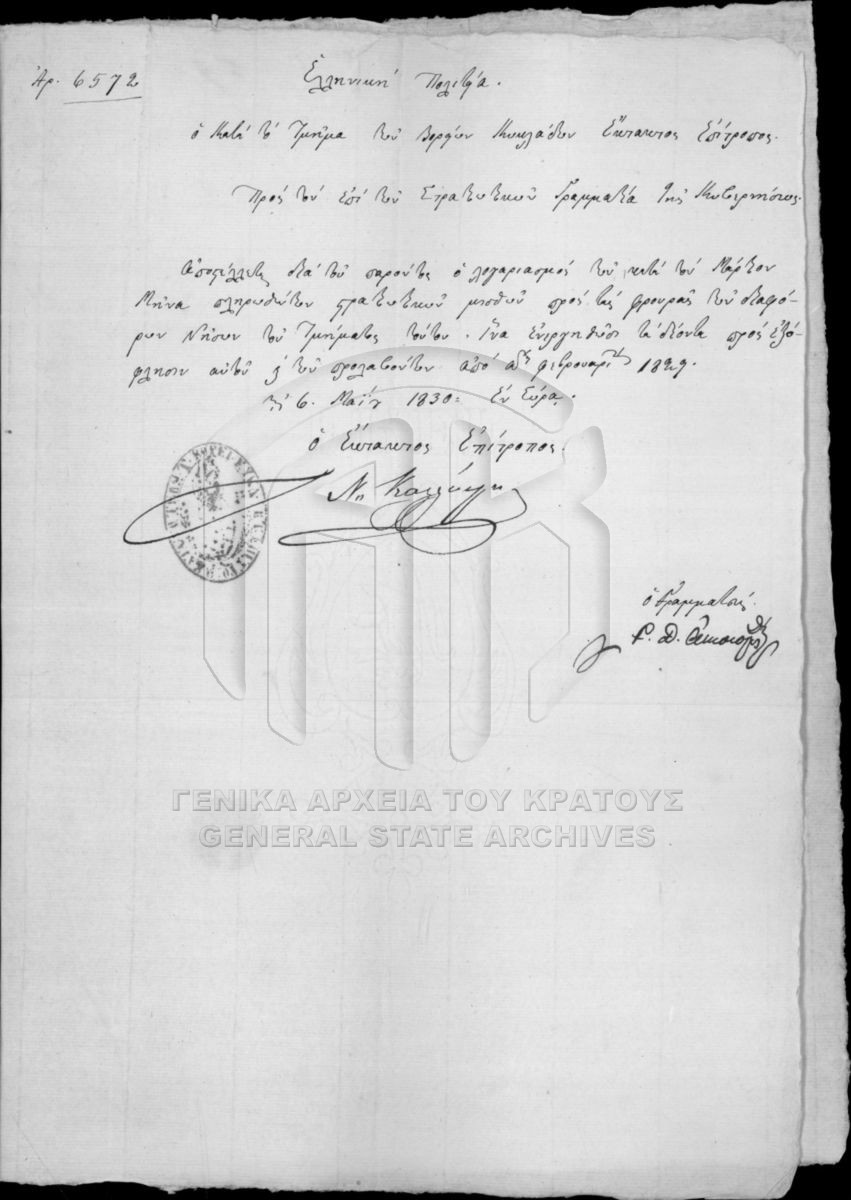 Ἀρ. 6572
Ἑλληνική Πολιτεία.
ὁ Κατά τό Τμῆμα τῶν Βορείων Κυκλάδων Ἔκτακτος Ἐπίτροπος.
Πρός τόν ἐπί τῶν Στρατιωτικῶν Γραμματέα τῆς Κυβερνήσεως.
Ἀποστέλλεται διά τοῦ παρόντος ὁ λογαριασμός τῶν κατά τόν Μάρτιον
Μῆνα πληρωθέντων στρατιωτικῶν μισθῶν πρός τάς φρουράς τῶν διαφό-
ρων Νήσων τοῦ Τμήματος τούτου. ἵνα ἐνεργηθῶσι τά δέοντα πρός ἐξό-
φλησιν αὐτοῦ καί τῶν προλαβόντων ἀπό αης φεβρουαρίου 1829.
τῇ 6. Μαΐου 1830: Ἐν Σύρᾳ.
ὁ Ἔκτακτος Ἐπίτροπος.
ὁ Γραμματεύς.
Γ. Δ.
ΓΕΝΙΚΑ ΑΡΧΕΙΑ ΤΟΥ ΚΡΑΤΟΥΣ
GENERAL STATE ARCHIVES